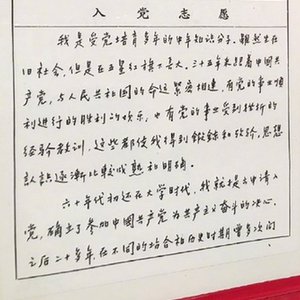 入党志愿
我是受党培育多年的中年知识分子。虽然生在
旧社会,但是在五星红旗下长大。三十五年来跟着中国共
产党,与人民共和国的命运紧密相连,有党的事业顺
利进行的胜利的欢乐,也有党的事业受到挫折的
经验教训,这些都使我得到锻炼和考验,思想
认识逐渐比较成熟和明确。
六十年代初还在大学时代,我就提出申请入
党,确立了参加中国共产党为共产主义奋斗的决心。
之后二十多年,在不同的场合和历史时期曾多次向